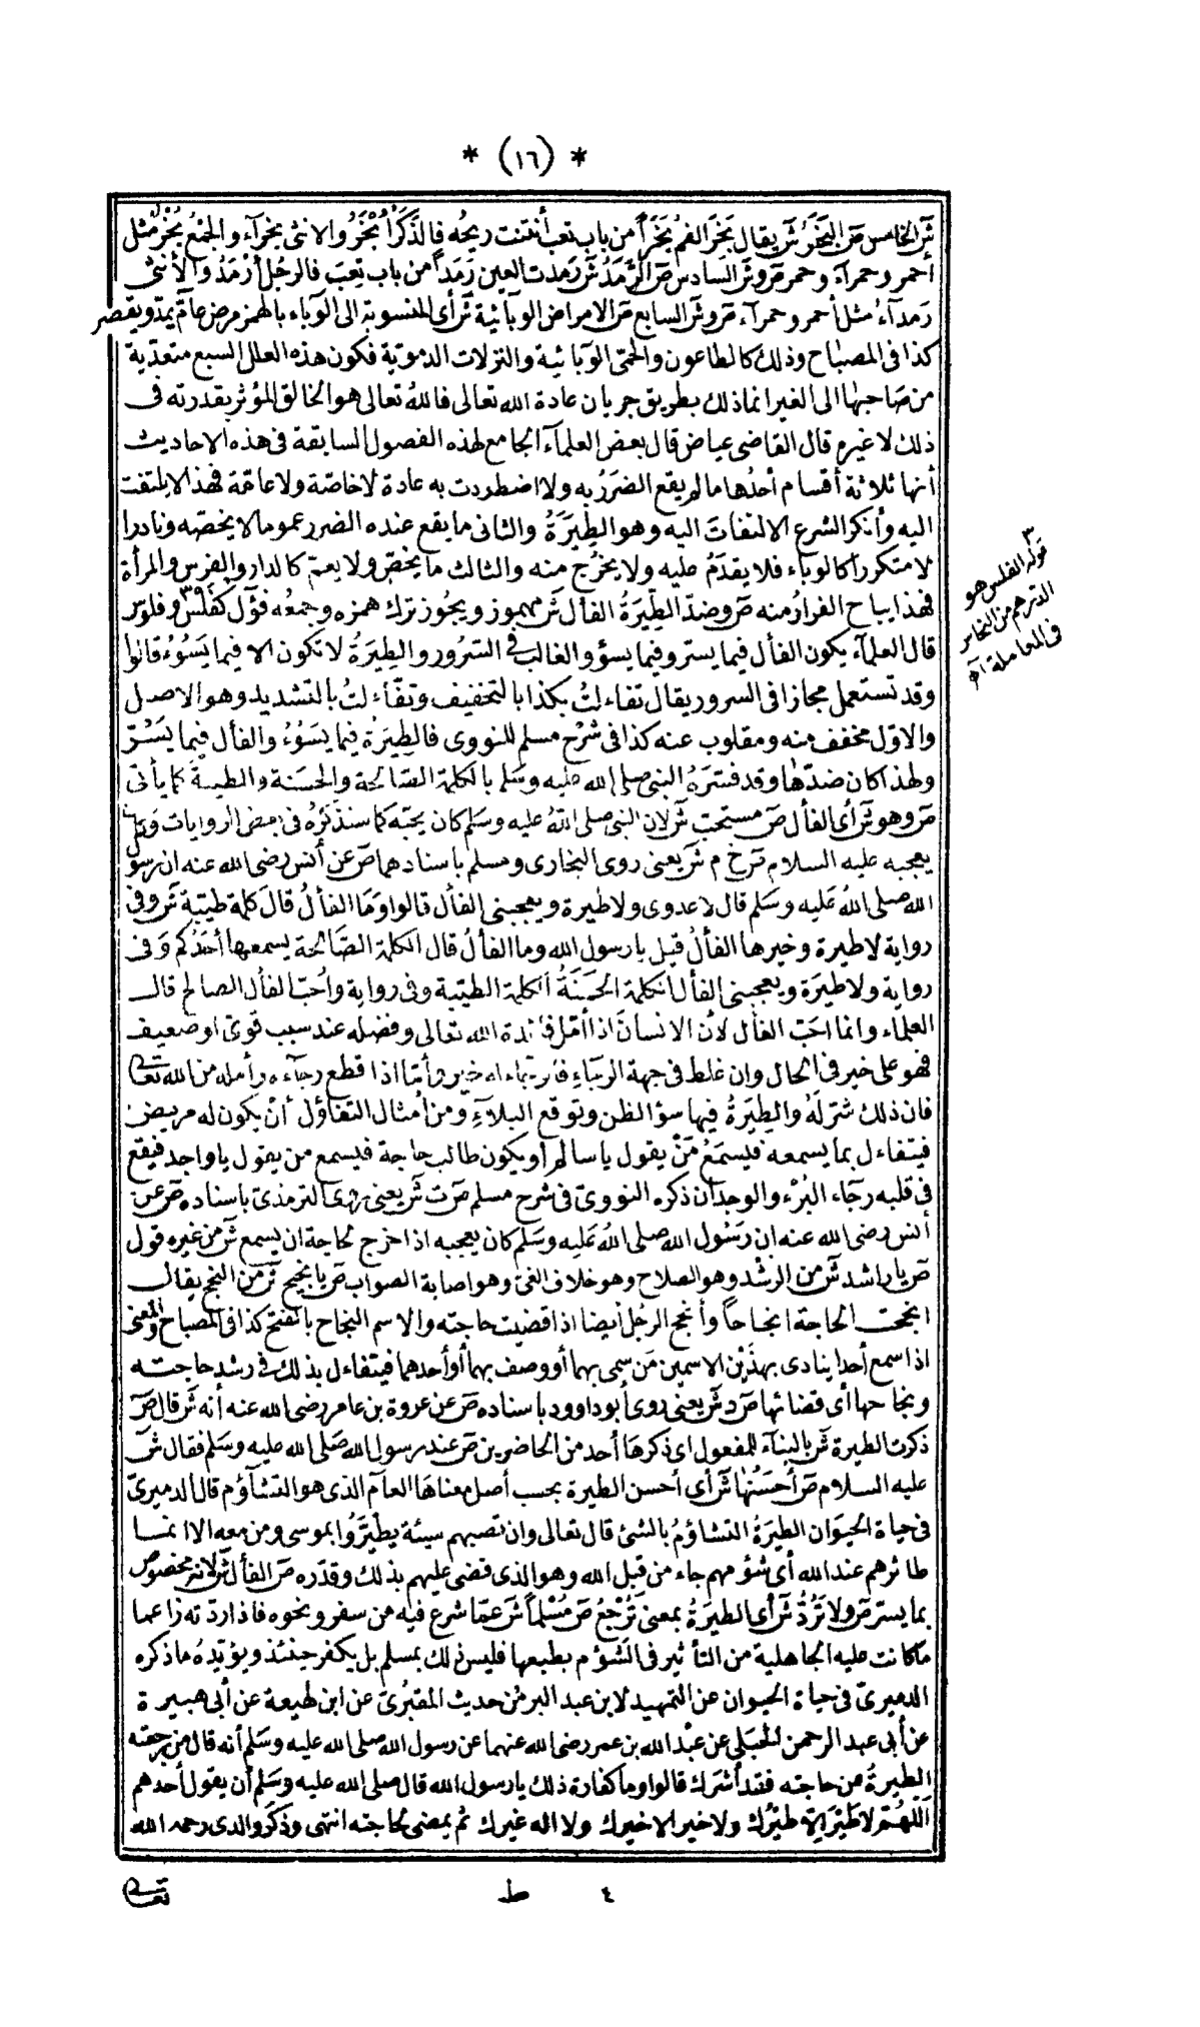 * (١٦) *
ش الخامس ص البَخَرُ ش يقال بَخَرَ الفمُ بَخَرًا من باب تعب أنتنت ريحُه فالذَّكَرُ أَبْخَرُ والانثى بخرآء والجَمْعُ بُخْرٌ مثل
أحمر وحمرآء وحمر ص و ش السادس ص الرَّمَدُ ش رَمدت العين رَمَدًا من باب تعِبَ فالرجُل أرْمَدُ والأنثى
رَمدآءُ مثل أحمر وحمرآء ص و ش السابع ص الامراض الوبآئية ش أى المنسوبة الى الوَبَاء بالهمز مرض عامّ يمدّ ويقصر
كذا فى المصبَاح وذلك كالطاعون والحمّى الوبآئية والنزلات الدمويّة فكون هذه العلل السبع متعدّية
من صَاحبهَا الى الغير انما ذلك بطريق جريان عادة الله تعالى فالله تعالى هو الخالق المؤثر بقدرته فى
ذلك لا غيره قال القاضى عياض قال بعض العلمآء الجامع لهذه الفصول السابقة فى هذه الاحاديث
أنها ثلاثة أقسام أحدُها ما لم يقع الضرَرُ به ولا اضطردت به عادة لا خاصّة ولا عامّة فهذا لا يلتفت
اليه وأنكر الشرع الالتفات اليه وهو الطِيَرَةُ والثانى ما يقع عنده الضرر عموما لا يخصّه ونادرا
لا متكررا كالوبَاء فلا يقدَمُ عليه ولا يخرُج منه والثالث ما يخصّ ولا يعمّ كالدار والفرس والمرأة
فهذا يباح الفرارُ منه ص وضدّ الطِيَرَةُ الفأل ش مهموز ويجُوز ترك همزه وجمعُه فؤل كفَلْس ٣ وفلوس
قال العلمآء يكون الفأل فيما يسرّ وفيما يسؤ والغالب فى السُرُور والطِيَرَةُ لا تكون الا فيما يَسُوْءُ قالوا
وقد تستعمل مجازا فى السرور يقال تفاءلتُ بكذا بالتخفيف وتفّاءلتُ بالتشديد وهو الاصل
والاوّل مخفف منه ومقلوب عنه كذا فى شَرْح مسلم للنووى فالطِيَرَةُ فيما يَسُوْءُ والفأل فيما يَسُرّ
ولهذا كان ضدّهَا وقد فسّرَهُ النبى صلى الله عليه وسَلم بالكلمة الصَالحة والحسَنة والطيبة كما يأتى
ص وهو ش أى الفأل ص مستحبّ ش لان النبى صلى الله عليه وسَلم كان يحبّه كما سنذكرُهُ فى بعض الروايات
يعجبه عليه السلام ص خ م ش يعنى روى البخارى ومسلم باسنادهما ص عن أنس رضى الله عنه ان رسول
الله صلى اللهُ عَليه وسَلم قال لا عدوى ولا طيرة ويعجبنى الفأل قالوا وَمَا الفألُ قالَ كلمة طيّبة ش وفى
رواية لا طيرة وخيرها الفألُ قيل يا رسول الله وما الفألُ قال الكلمة الصَالحة يسمعها أحَدُكم وَفى
رواية ولا طيَرَة ويعجبنى الفأل الكلمة الحَسَنَةُ الكلمة الطيّبة وفى رواية واُحُبّ الفأل الصالح قال
العلماء وانما احَبّ الفأل لأن الانسانَ اذا أمّل فائدة الله تعالى وفضله عند سبب قوىّ او ضعيف
فهو على خير فى الحال وان غلط فى جهة الرجَاءِ فالرجاء له خير وأمّا اذا قطع رجآءه وأمله من الله تعالى
فان ذلك شرّ لَهُ والطِيَرَةُ فيها سؤ الظن وتوقع البلآءِ ومن أمثال التفاؤل أنْ يكون له مريض
فيتفاءل بما يسمعه فيسمَعُ مَنْ يقول يا سالم أو يكون طالب حاجة فيسمع من يقول يا واجد فيقع
فى قلبه رجَاء البُرْء والوجدان ذكره النووىّ فى شرح مسلم ص ت ش يعنى روى الترمذىّ باسناده ص عن
أنس رضى الله عنه ان رَسُول الله صلى اللهُ عَليه وسَلم كان يعجبه اذا خرج لحاجة ان يسمع ش من غيره قول
ص يا راشد ش من الرشْد وهو الصلاح وهو خلاف الغىّ وهو اصابة الصواب ص يا نجيح ش من النجح يقال
انجحت الحاجة انجاحًا وأنجح الرجُل أيضا اذا قضيت حاجته والاسم النجَاح بالفتح كذا فى المصباح والمعنى
اذا سمع أحدا ينادى بهذَيْن الاسمين مَن سمى بهما أو وصف بهما أو أحدهما فيتفاءل بذلك فى رشد حاجته
ونجاحها أى قضائها ص د ش يعنى روى أبو داوود باسناده ص عن عروة بن عامر رضى الله عنه أنه ش قال ص
ذكرت الطيرة ش بالبنآء للمفعول اى ذكرهَا أحد من الحاضرين ص عند رسول الله صَلى الله عليه وسَلم فقال ش
عليه السلام ص أحسَنُهَا ش أى أحسن الطيرة بحسب أصل معناهَا العآم الذى هو التشآؤم قال الدميرىّ
فى حياة الحيوَان الطيَرَةُ التشاؤمُ بالشئ قال تعالى وان تصبهم سيئة يطّيَّرُوا بموسى ومن معه الا انما
طائرهم عند الله أى شؤمهم جاء من قبل الله وهو الذى قضى عليهم بذلك وقدّره ص الفأل ش لانه مخصُوص
بما يسر ص ولا تَرُدُّ ش أى الطيَرَةُ بمعنى تُرْجِعُ ص مُسْلمًا ش عمّا شرع فيه من سفر ونحوه فاذا ردّته زاعما
ما كانت عليه الجاهلية من التأثير فى الشؤم بطبعها فليس ذلك بمسلم بل يكفر حينئذ ويؤيّدهُ ما ذكره
الدميرىّ فى حياة الحيوان عن التمهيد لابن عبد البر من حديث المقبُرىّ عن ابن لهيعة عن أبى هبيرة
عن أبى عبد الرحمن الحُبَلى عن عبْد الله بن عمر رضى الله عنهما عن رسول الله صلى الله عليه وسَلم أنه قال من رجعته
الطيرةُ من حاجته فقد أشرَك قالوا وما كفارة ذلك يا رسول الله قال صلى الله عليه وسَلم أن يقول أحدهم
اَللّهُمّ لا طَيْرَ الا طَيْرُك ولا خير الا خيرك ولا اله غيرك ثم يمضى لحاجته انتهى وذكَر والدى رحمه الله
٣
قوله الفلس هو
الدرهم من النحاس
فى المعاملة اه
٤ ط تعالى